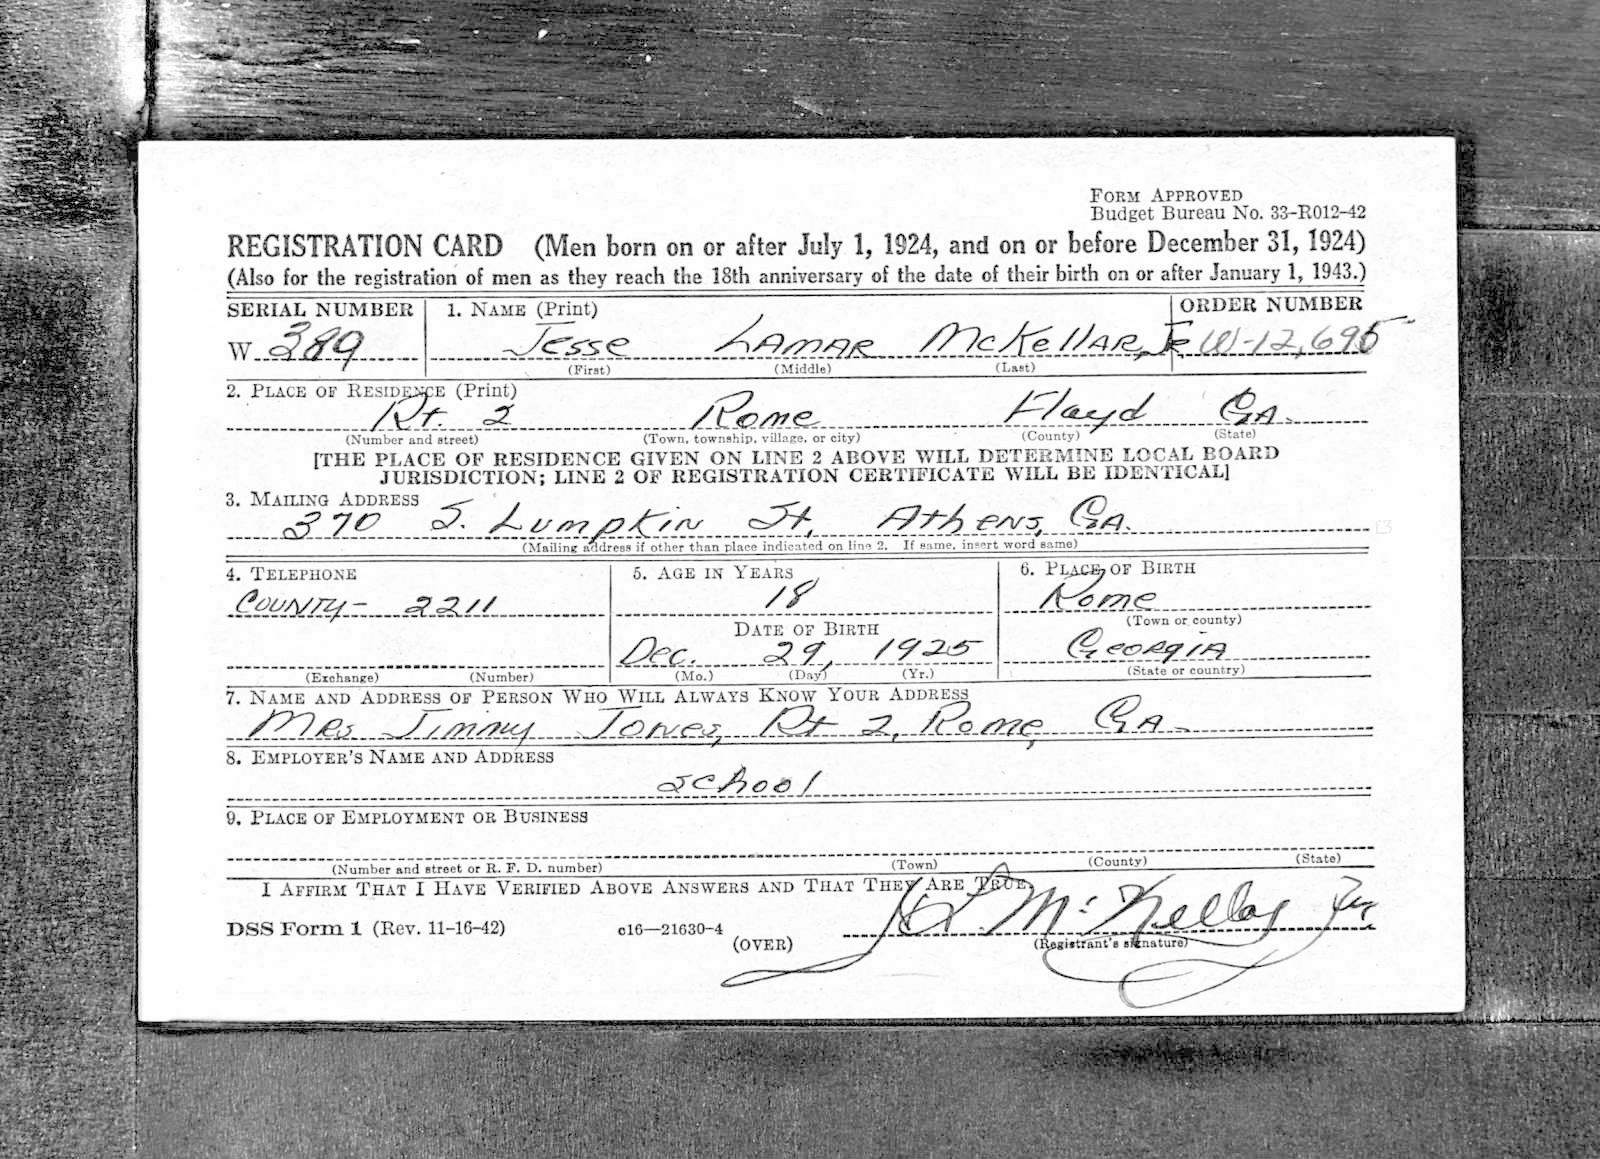 FORM APPROVED
Budget Bureau No. 33-R012-42
REGISTRATION CARD (Men born on or after July 1, 1924, and on or before December 31, 1924)
(Also for the registration of men as they reach the 18th anniversary of the date of their birth on or after January 1, 1943.)
SERIAL NUMBER 1. NAME (Print) ORDER NUMBER
W 389 Jesse LAMAR McKellAR, JR W-12,695
(First) (Middle) (Last)
2. PLACE OF RESIDENCE (Print)
Rt. 2 Rome Floyd GA.
(Number and street) (Town, township, village, or city) (County) (State)
[THE PLACE OF RESIDENCE GIVEN ON LINE 2 ABOVE WILL DETERMINE LOCAL BOARD
JURISDICTION; LINE 2 OF REGISTRATION CERTIFICATE WILL BE IDENTICAL]
3. MAILING ADDRESS
370 S. Lumpkin St, Athens, GA.
(Mailing address if other than place indicated on line 2. If same, insert word same)
4. TELEPHONE 5. AGE IN YEARS 6. PLACE OF BIRTH
COUNTY- 2211 18 Rome
DATE OF BIRTH (Town or county)
Dec. 29, 1925 Georgia
(Exchange) (Number) (Mo.) (Day) (Yr.) (State or country)
7. NAME AND ADDRESS OF PERSON WHO WILL ALWAYS KNOW YOUR ADDRESS
MRS Jimmy Jones, Rt 2, Rome, GA.
8. EMPLOYER'S NAME AND ADDRESS
school
9. PLACE OF EMPLOYMENT OR BUSINESS
(Number and street or R. F. D. number) (Town) (County) (State)
I AFFIRM THAT I HAVE VERIFIED ABOVE ANSWERS AND THAT THEY ARE TRUE
DSS Form 1 (Rev. 11-16-42) c16—21630-4 J L McKellar Jr.
(OVER) (Registrant's signature)